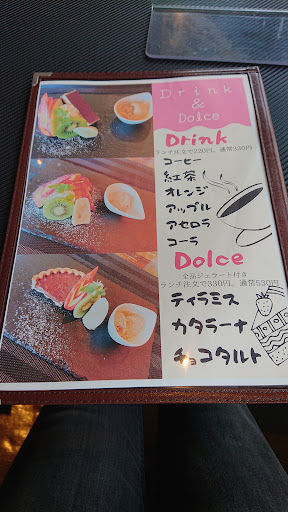 Drink
&
Dolce
Drink
ランチ注文で220円。通常330円
コーヒー
紅茶
オレンジ
アップル
アセロラ
コーラ
Dolce
全品ジェラート付き
ランチ注文で330円。通常530円
ティラミス
カタラーナ
チョコタルト